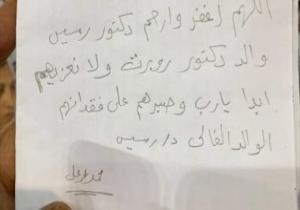 اللهم اغفر وارحم دكتور رمسيس
والد دكتور روبرت ولا تعزيهم
ابدا يارب وصبرهم على فقدانهم
الوالد الغالى د/ رمسيس
محمد على